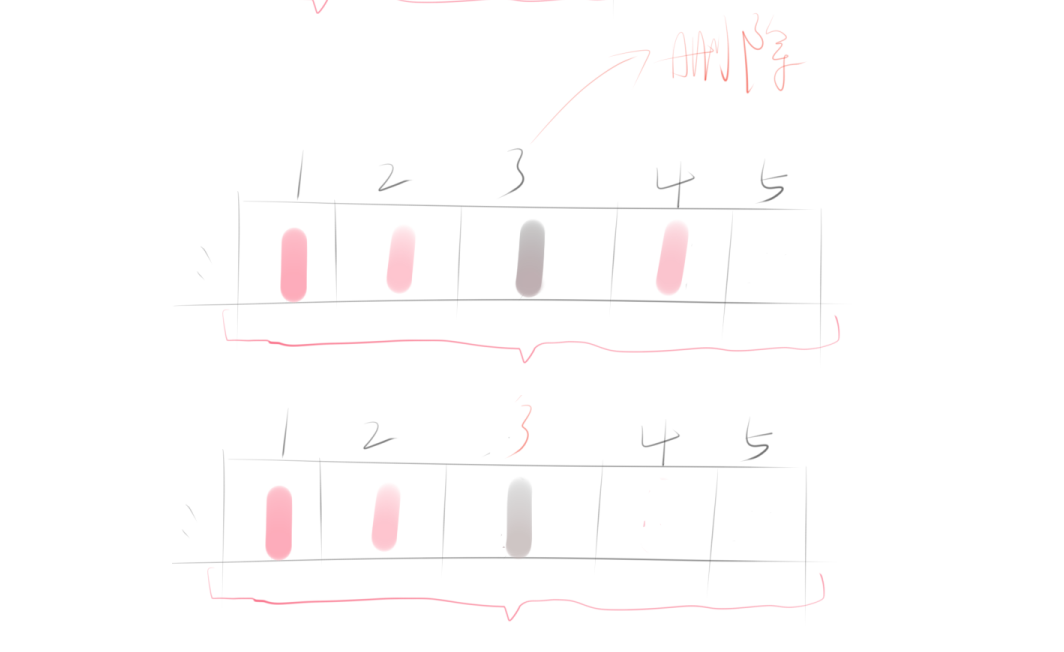 删除
1 2 3 4 5
1 2 3 4 5